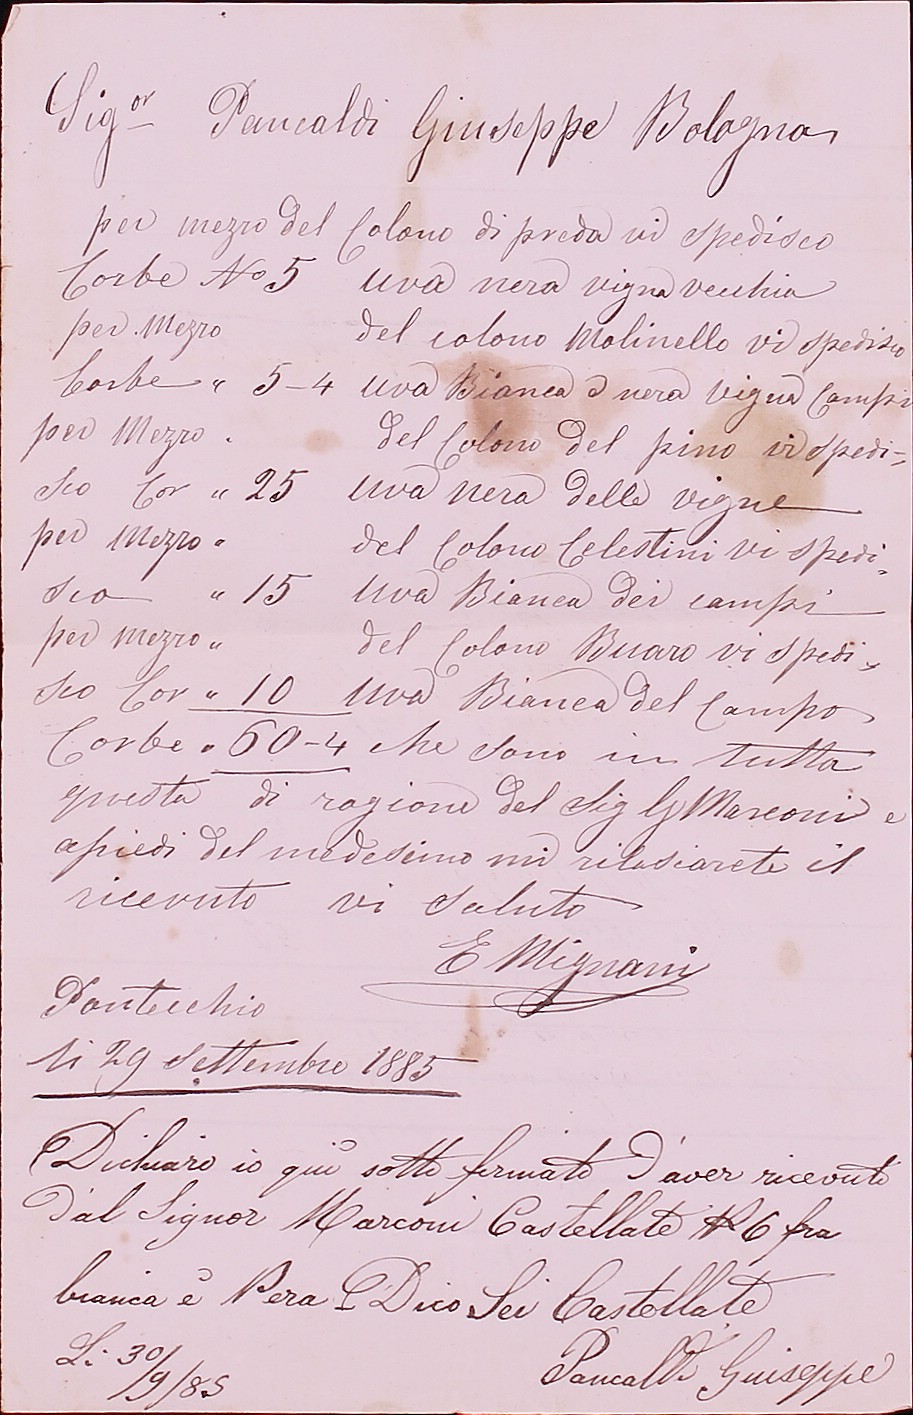 Sig.or Pancaldi Giuseppe Bologna
per mezzo del Colono di preda vi spedisco
Corbe No 5 uva nera vigna vecchia
per Mezzo del colono Molinello vi spedisco
Corbe " 5-4 uva Bianca e nera vigna Campi
per Mezzo " del Colono del pino vi spedi=
sco Cor " 25 uva nera delle vigne
per Mezzo " del Colono Celestini vi spedi=
sco " 15 uva Bianca dei campi
per Mezzo " del Colono Buaro vi spedi=
sco Cor " 10 uva Bianca del Campo
Corbe " 60-4 che sono in tutta
questa di ragione del Sig G Marconi e
apiedi del medesimo mi rilasiarete il
ricevuto vi saluto
E Mignani
Pontecchio
li 29 Settembre 1885
Dichiaro io quì sotto firmato d'aver ricevuto
dal Signor Marconi Castellate N 6 fra
bianca è Nera Dico Sei Castellate
Li 30/9/85 Pancaldi Giuseppe